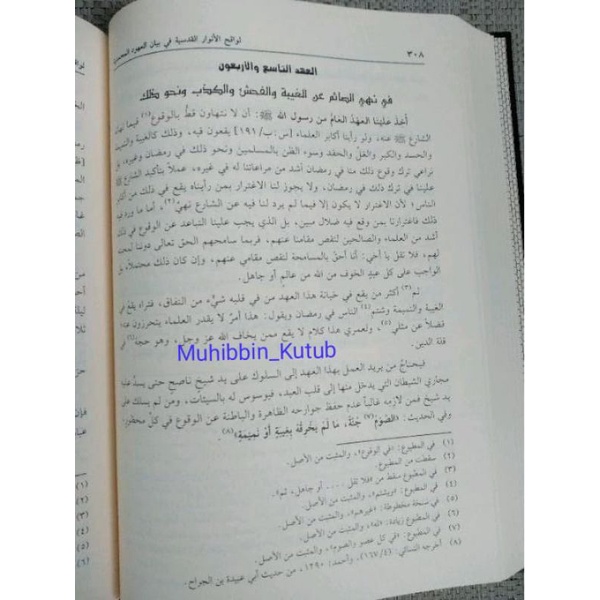 ٣٠٨ لواقح الأنوار القدسية في بيان العهود المحمدية
العهد التاسع والأربعون
في نهي الصائم عن الغيبة والفحش والكذب ونحو ذلك
أُخِذَ علينا العهدُ العامُّ من رسول الله ﷺ: أن لا نتهاون قطُّ بالوقوع(١) فيما نهانا
الشارع ﷺ عنه، ولو رأينا أكابر العلماء [س: ب/١٩١] يقعون فيه، وذلك كالغيبة والنميمة
والحسد والكبر والغلِّ والحقد وسوء الظن بالمسلمين ونحو ذلك في رمضان وغيره، بل
نراعي ترك وقوع ذلك منا في رمضان أشد من مراعاتنا له في غيره، عملاً بتأكيد الشارع ﷺ
علينا في ترك ذلك في رمضان، ولا يجوز لنا الاغترار بمن رأيناه يقع في ذلك من أكابر
الناس؛ لأن الاغترار لا يكون إلا فيما لم يرد لنا فيه عن الشارع نهيٌ(٢)، أما ما ورد فيه
ذلك فاغترارنا بمن وقع فيه ضلال مبين، بل الذي يجب علينا التباعد عن الوقوع في ذلك
أشد من العلماء والصالحين لنقص مقامنا عنهم، فربما سامحهم الحق تعالى دوننا لمحبته
لهم، فلا تقل يا أخي: أنا أحقُّ بالمسامحة لنقص مقامي عنهم، وإن كان ذلك محتملاً، بل
الواجب على كل عبدٍ الخوف من الله من عالمٍ أو جاهل.
ثم(٣) أكثر من يقع في خيانة هذا العهد من في قلبه شيءٌ من النفاق، فتراه يقع في
الغيبة والنميمة وشتم(٤) الناس في رمضان ويقول: هذا أمرٌ لا يقدر العلماء يتحرزون عنه
فضلاً عن مثلي(٥)، ولعمري هذا كلام لا يقع ممن يخاف الله عز وجل، وهو حجة(٦) في
قلة الدين.
Muhibbin_Kutub
فيحتاج من يريد العمل بهذا العهد إلى السلوك على يد شيخ ناصح حتى يسدَّ عليه
مجاري الشيطان التي يدخل منها إلى قلب العبد، فيوسوس له بالسيئات، ومن لم يسلك على
يد شيخ فمن لازمه غالباً عدم حفظ جوارحه الظاهرة والباطنة عن الوقوع في كلِّ محظور.
وفي الحديث: «الصَّوْمُ(٧) جُنَّةٌ، مَا لَمْ يَخْرِقْهُ بِغِيبَةٍ أَوْ نَمِيمَةٍ»(٨).
(١) في المطبوع: «في الوقوع»، والمثبت من الأصل.
(٢) سقطت من المطبوع.
(٣) في المطبوع سقط من «فلا تقل .... أو جاهل، ثم».
(٤) في المطبوع: «ويشتم»، والمثبت من الأصل.
(٥) في نسخة مخطوطة: «غيرهم»، والمثبت من الأصل.
(٦) في المطبوع زيادة: «له»، والمثبت من الأصل.
(٧) في المطبوع: «في كل عضو والصوم»، والمثبت من الأصل.
(٨) أخرجه النسائي: (١٦٧/٤)، وأحمد: ١٦٩٠، من حديث أبي عبيدة بن الجراح.